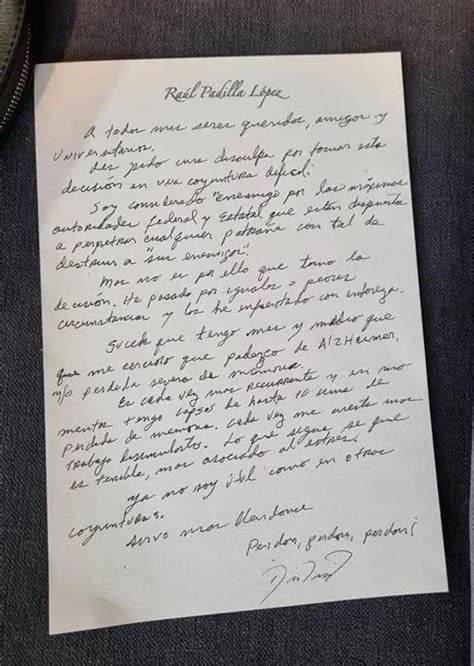 Raúl Padilla López
A todos mis seres queridos, amigos y
universitarios.
Les pido una disculpa por tomar esta
decisión en una coyuntura difícil.
Soy considerado "enemigo" por las máximas
autoridades federal y estatal que están dispuestas
a perpetrar cualquier patraña con tal de
destruir a "sus enemigos".
Mas no es por ello que tomo la
decisión. He pasado por iguales o peores
circunstancias y las he enfrentado con entereza.
Sucede que tengo mes y medio que
que me cercioro que padezco de Alzheimer,
y/o perdida severa de memoria.
Es cada vez mas recurrente y en mo
mentos tengo lapsos de hasta 10 de
perdida de memoria. Cada vez me cuesta mas
trabajo. Lo que sigue, se que
es terrible, mas asociado al estres.
Ya no soy útil como en otras
coyunturas.
Sirvo mas
Perdon, perdon, perdon!